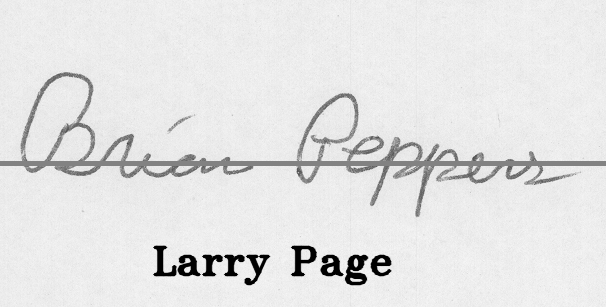 Brian Peppers
Larry Page